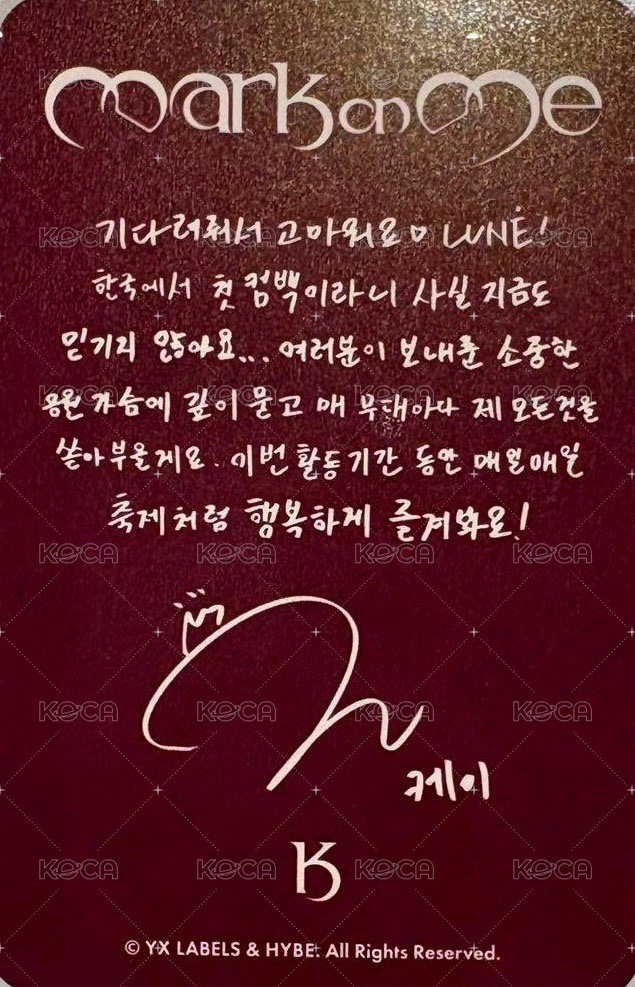 mark on me
기다려줘서 고마워요♡ LUNÉ!
한국에서 첫 컴백이라니 사실 지금도
믿기지 않아요... 여러분이 보내준 소중한
응원 가슴에 깊이 묻고 매 무대마다 제 모든것을
쏟아부을게요. 이번 활동기간 동안 매일매일
축제처럼 행복하게 즐겨봐요!
케이
K
© YX LABELS & HYBE. All Rights Reserved.
KOCA